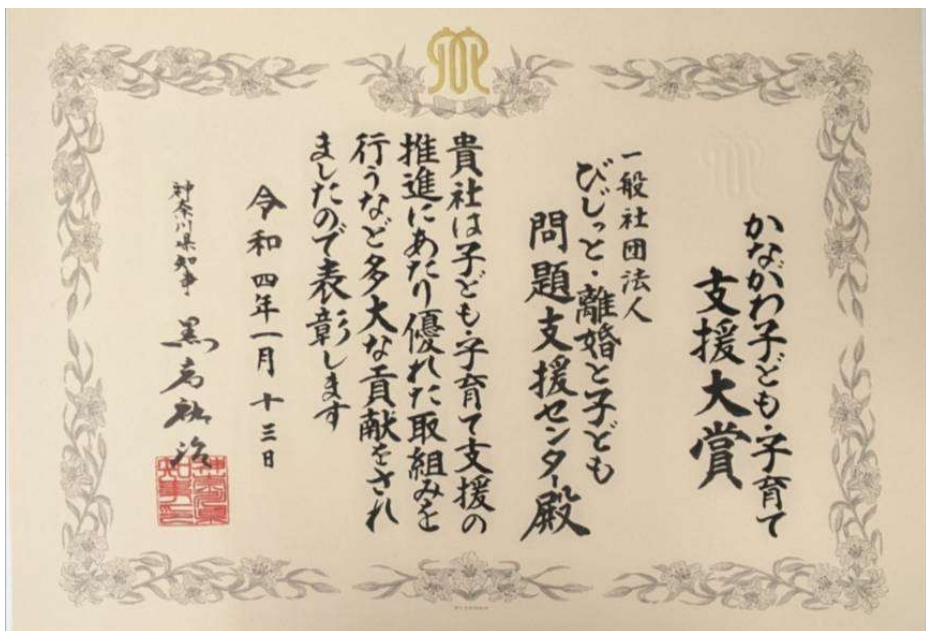 かながわ子ども・子育て
支援大賞
一般社団法人
びじっと・離婚と子ども
問題支援センター殿
貴社は子ども・子育て支援の
推進にあたり優れた取組みを
行うなど多大な貢献をされ
ましたので表彰します
令和四年一月十三日
神奈川県知事 黒岩祐治